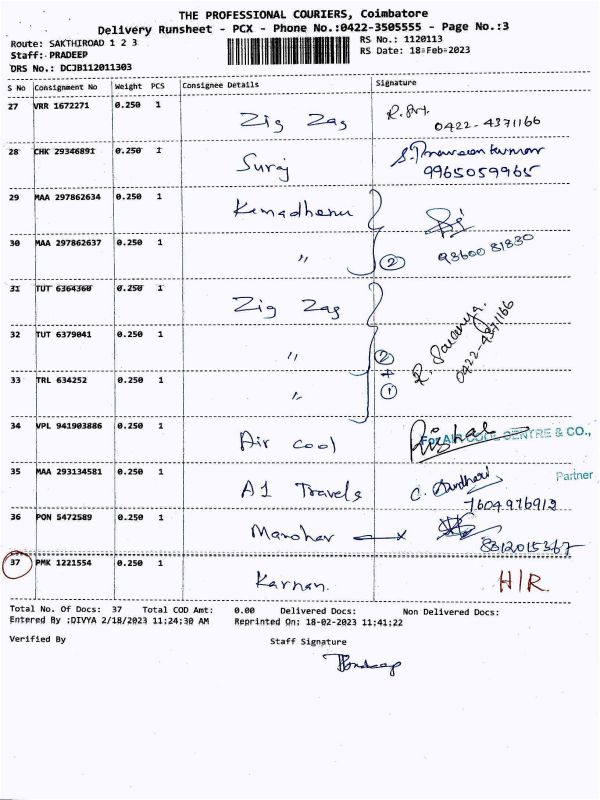 THE PROFESSIONAL COURIERS, Coimbatore
Delivery Runsheet - PCX - Phone No.:0422-3505555 - Page No.:3
Route: SAKTHIROAD 1 2 3 RS No.: 1120113
Staff: PRADEEP RS Date: 18-Feb-2023
DRS No.: DCJB112011303
S No Consignment No Weight PCS Consignee Details Signature
27 VRR 1672271 0.250 1 Zig Zag 0422-4371166
28 CHK 29346891 0.250 1 Suraj S. Praveen Kumar
9965059965
29 MAA 297862634 0.250 1 Kamadhenu
30 MAA 297862637 0.250 1 " 2 93600 81830
31 TUT 6364360 0.250 1 Zig Zag
32 TUT 6379041 0.250 1 " 2 R. Saranya.
0422-4371166
33 TRL 634252 0.250 1 " + 1
34 VPL 941903886 0.250 1 Air cool For AIR COOL CENTRE & CO.,
35 MAA 293134581 0.250 1 A1 Travels Partner
7604976912
36 PON 5472589 0.250 1 Manohar
8812015367
37 PMK 1221554 0.250 1 Karnan. H/R.
Total No. Of Docs: 37 Total COD Amt: 0.00 Delivered Docs: Non Delivered Docs:
Entered By :DIVYA 2/18/2023 11:24:30 AM Reprinted On: 18-02-2023 11:41:22
Verified By Staff Signature